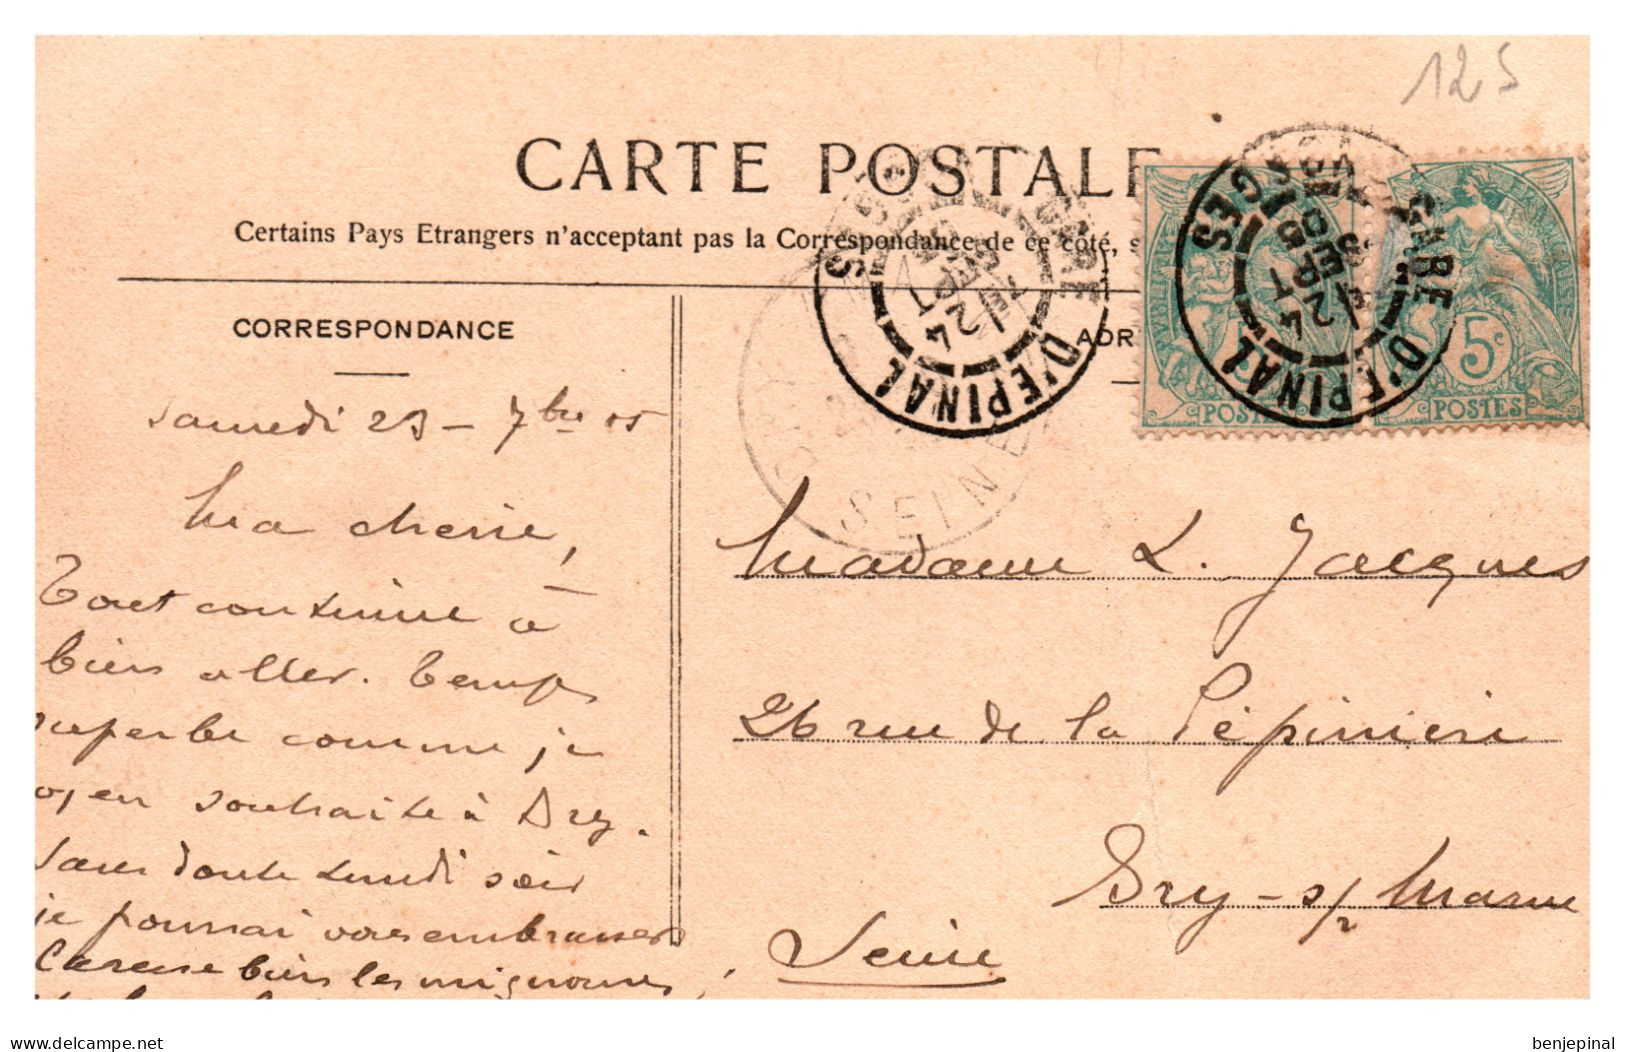 125
CARTE POSTALE
Certains Pays Etrangers n'acceptant pas la Correspondance de ce côté, s
CORRESPONDANCE
ADR
GARE D'EPINAL
VOSGES
24
SEPT
05
GARE D'EPINAL
VOSGES
24
SEPT
05
SEINE
POSTES
5c
POSTES
Samedi 23 - 7bre 05
Ma cherie,
Tout continue à
bien aller. Temps
superbe comme je
en souhaite à Bry.
Sans doute Lundi soir
je pourrai vous embrasser
Caresse bien les mignonnes,
Madame L. Jacques
26 rue de la Pépinière
Bry-s/ Marne
Seine
delcampe.net
benjepinal